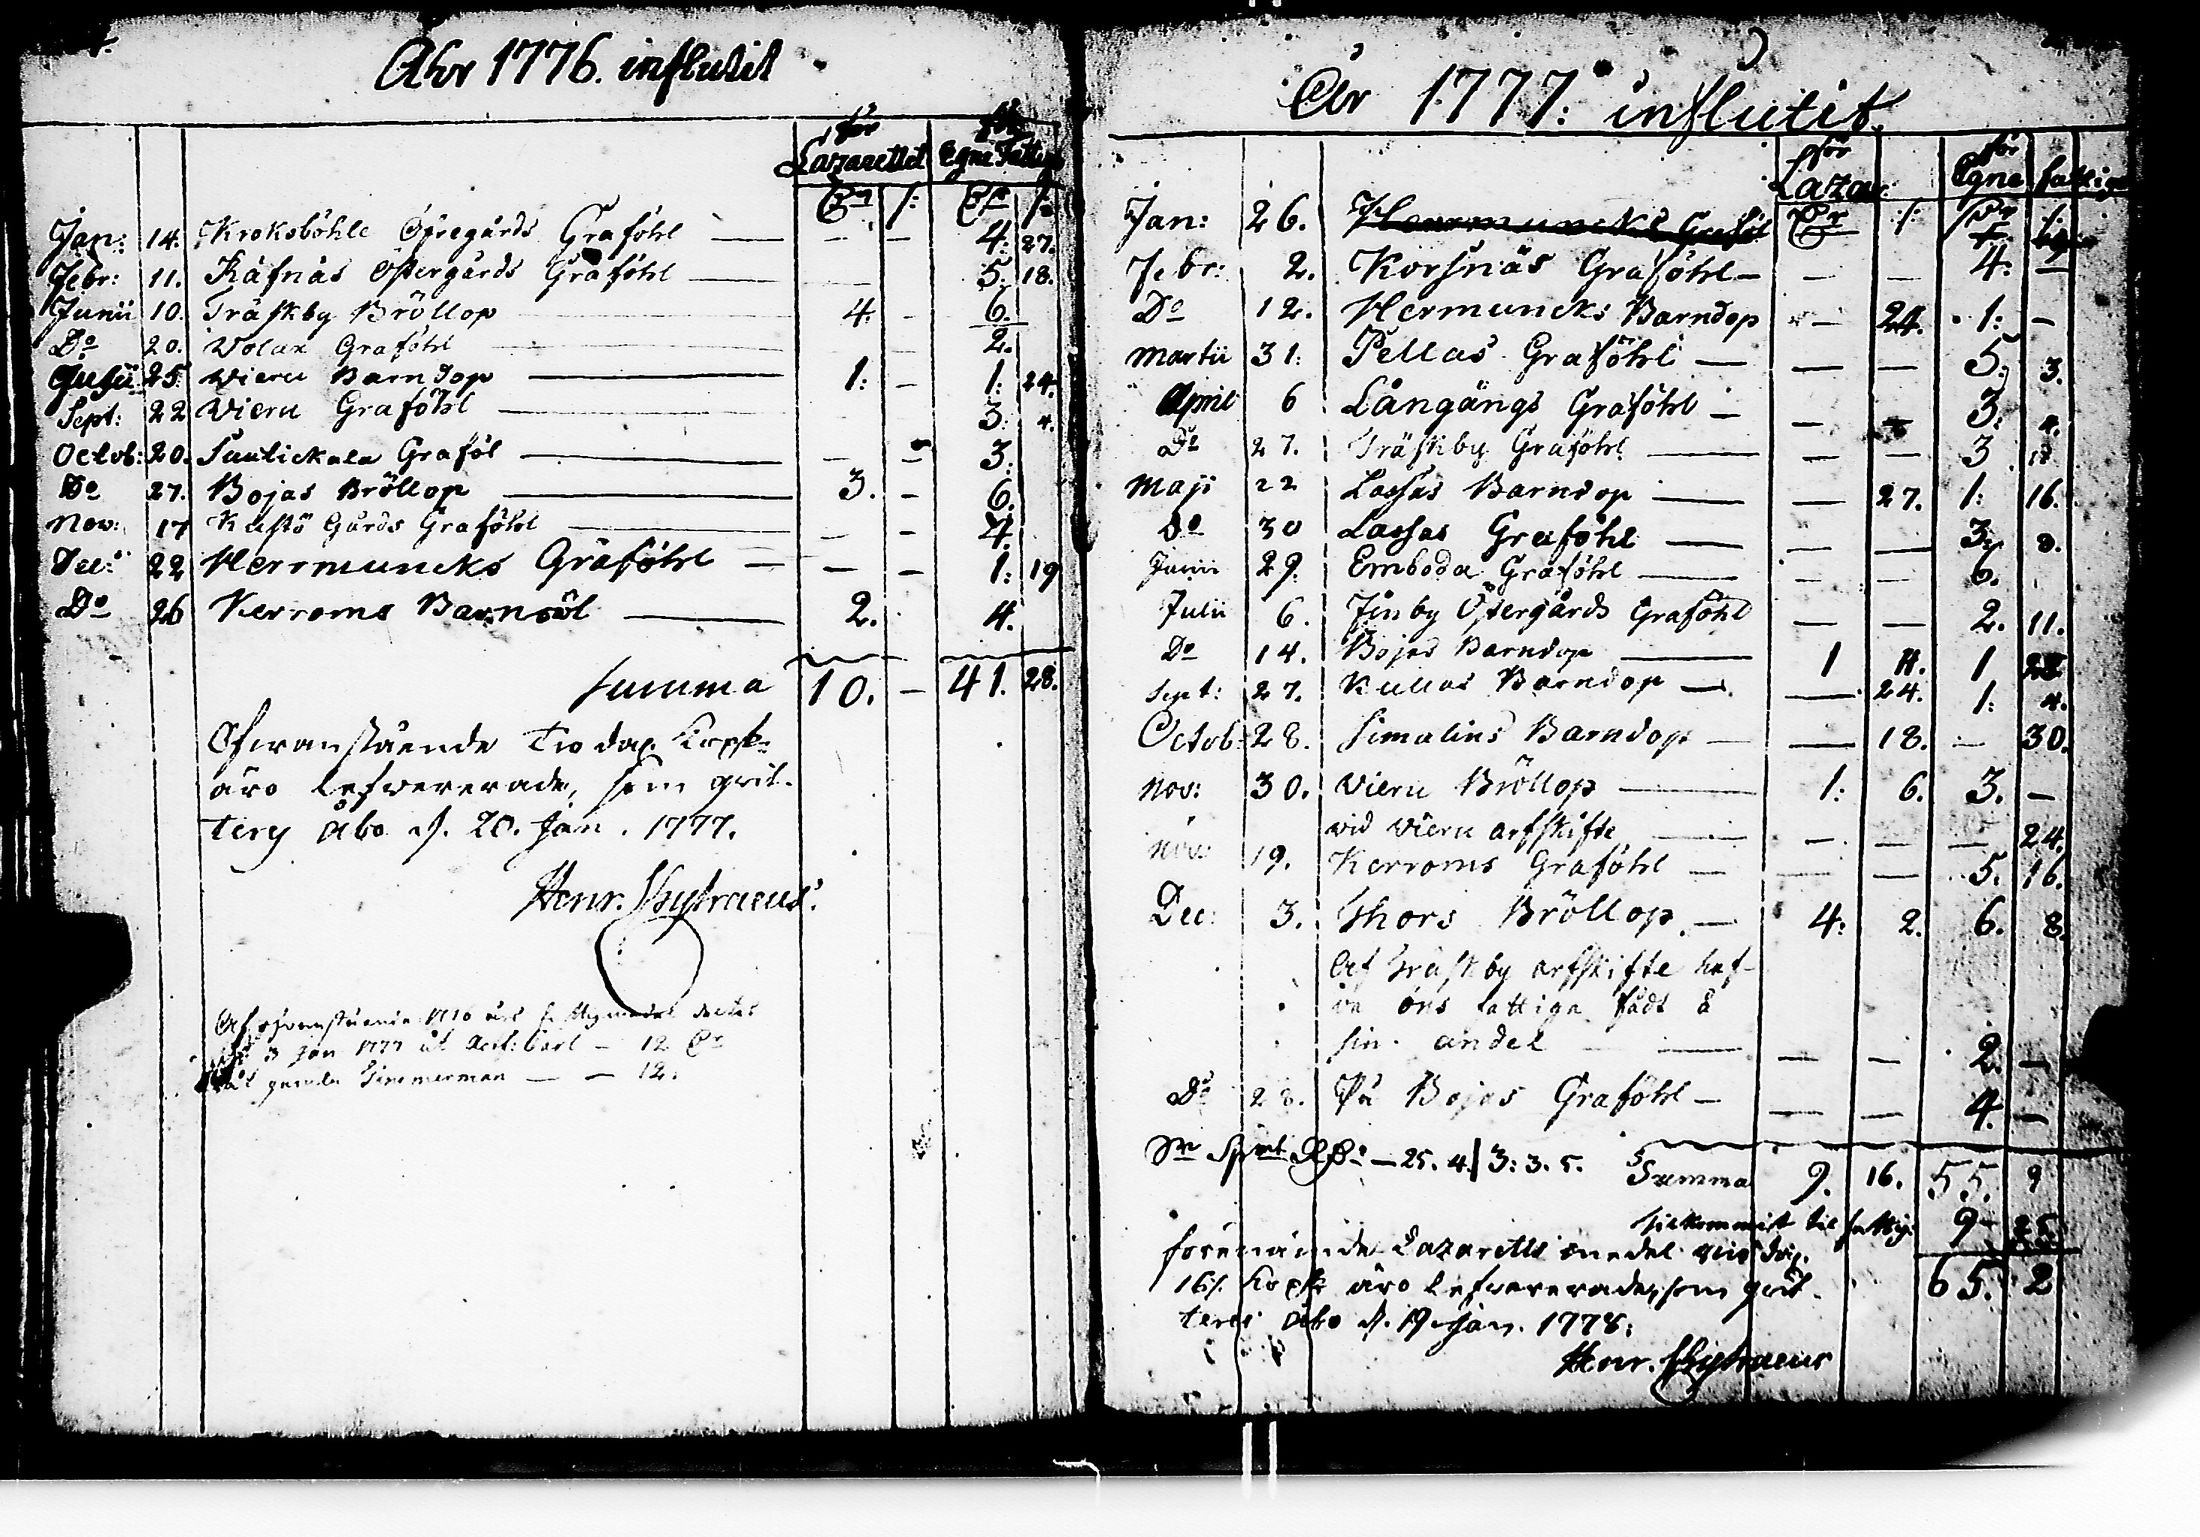 Ahr 1776. influtit
för Lazarettet för Egne Fattiga
Jan: 14. Kroksböhle Öfregårds Graföhl — — 4: 27.
Febr: 11. Råfnäs Östergårds Graföhl — 5: 18.
Junii 10. Träskby Bröllop 4. — 6.
Do 20. Wolax Graföhl — 2.
Julii 25. Wieru Barndop — 1: — 1: 24.
Sept: 22 Wieru Graföhl — 3: 4.
Octob: 20. Suutickala Graföl — — — 3:
Do 27. Bojas Bröllop — 3. — 6.
Nov: 17 Kustö Gårds Graföhl — — — 4.
Dec: 22 Herrmuncks Gräföhl — — — 1: 19
Do 26 Kerroms Barnsöl — 2. 4.
Summa 10. — 41. 28.
Ofwanstående Tio dal. Koppr
äro lefwererade, som qvit-
tery Åbo d. 20. Jan. 1777.
Henr.
3 Jan 1777 12
Timmerman — — 12.
År 1777: influtit
för Lazar: för Egne fattiga
Jan: 26. Herrmuncks Graföl
Febr: 2. Korsnäs Graföhl — — — 4: —
Do 12. Hermuncks Barndop — 24. 1: —
Martii 31: Pellas Graföhl — — — 5: 3.
April 6 Långängs Graföhl — — — 3: 4.
Do 27. Träskby Graföhl — — — 3
Maji 22 Lassas Barndop — — 27. 1: 16.
Do 30 Lassas Graföhl — — — 3. 8.
Junii 29. Emboda Graföhl — — — 6.
Julii 6. Finby Östergårds Graföhl — — 2. 11.
Do 14. Bojas Barndop — 1 1
Sept: 27. Kullas Barndop — — 24. 1: 4.
Octob: 28. Simalins Barndop — — 18. — 30.
Nov: 30. Wieru Bröllop — 1: 6. 3. —
vid Wieru arfskifte — — — — 24.
Nov: 19. Kerroms Graföhl — — — 5. 16.
Dec: 3. Thors Bröllop. — 4: 2. 6. 8.
Af Träskby arfskifte haf-
va fattiga fådt å
sin andel — — — 2. —
Do 28. På Bojas Graföhl — — — 4. —
— 25. 4. 3: 3. 5. Summa 9. 16. 55. 9
tilkommit til fattig: 9 25
förenämde Lazaretts medel dal.
16/. Koppr äro lefwererade, som qvit- 65. 2
teras Åbo d. 19 Jan. 1778:
Henr.